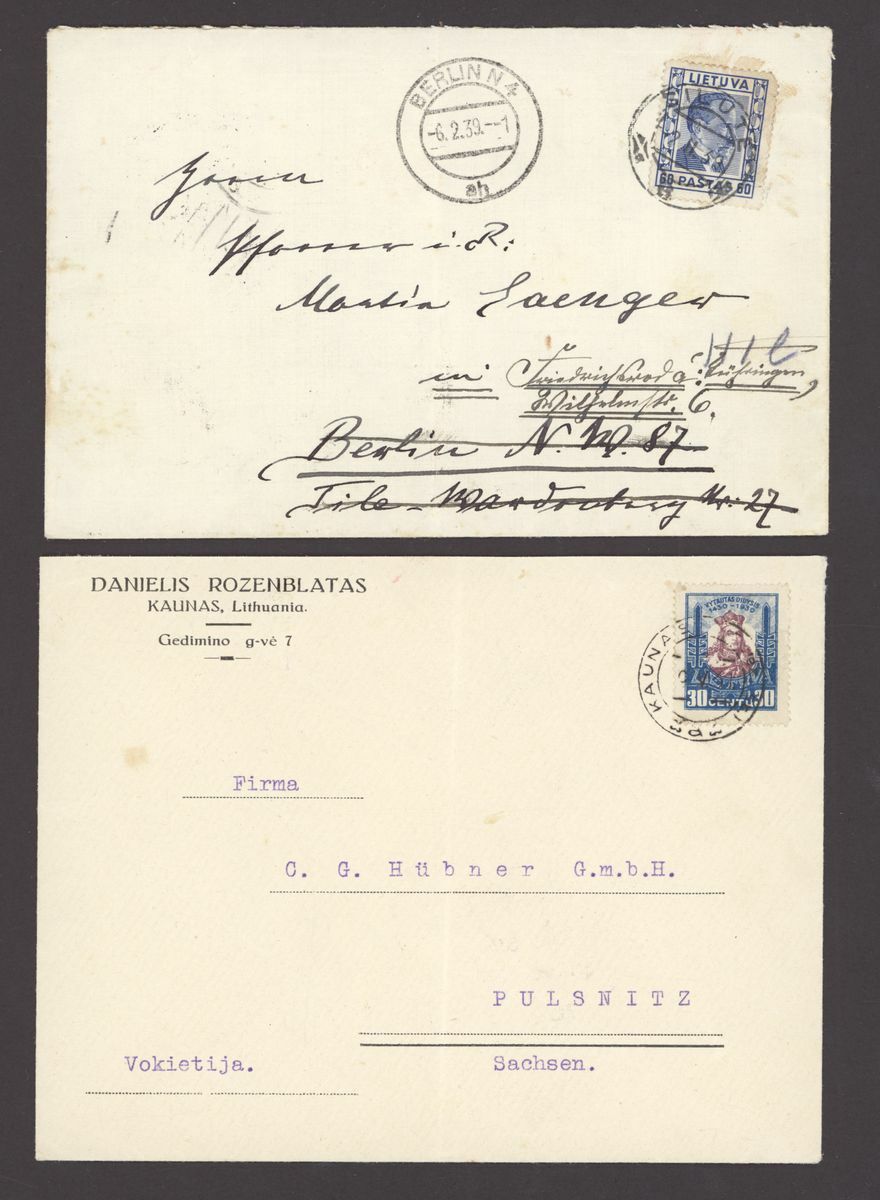 BERLIN N 4
-6.2.39.--1
ah
LIETUVA
60 PAŠTAS 60
Herrn
Pfarrer i. R:
Martin Laenger
in Friedrichsrod a:
Wilhelmstr. 6.
Berlin N. W. 87
Tile-Wardenberg Nr: 27
DANIELIS ROZENBLATAS
KAUNAS, Lithuania.
Gedimino g-vė 7
VYTAUTAS DIDYSIS
1430-1930
LIETUVA
30 CENTŲ 30
KAUNAS
Firma
C. G. Hübner G.m.b.H.
PULSNITZ
Vokietija. Sachsen.